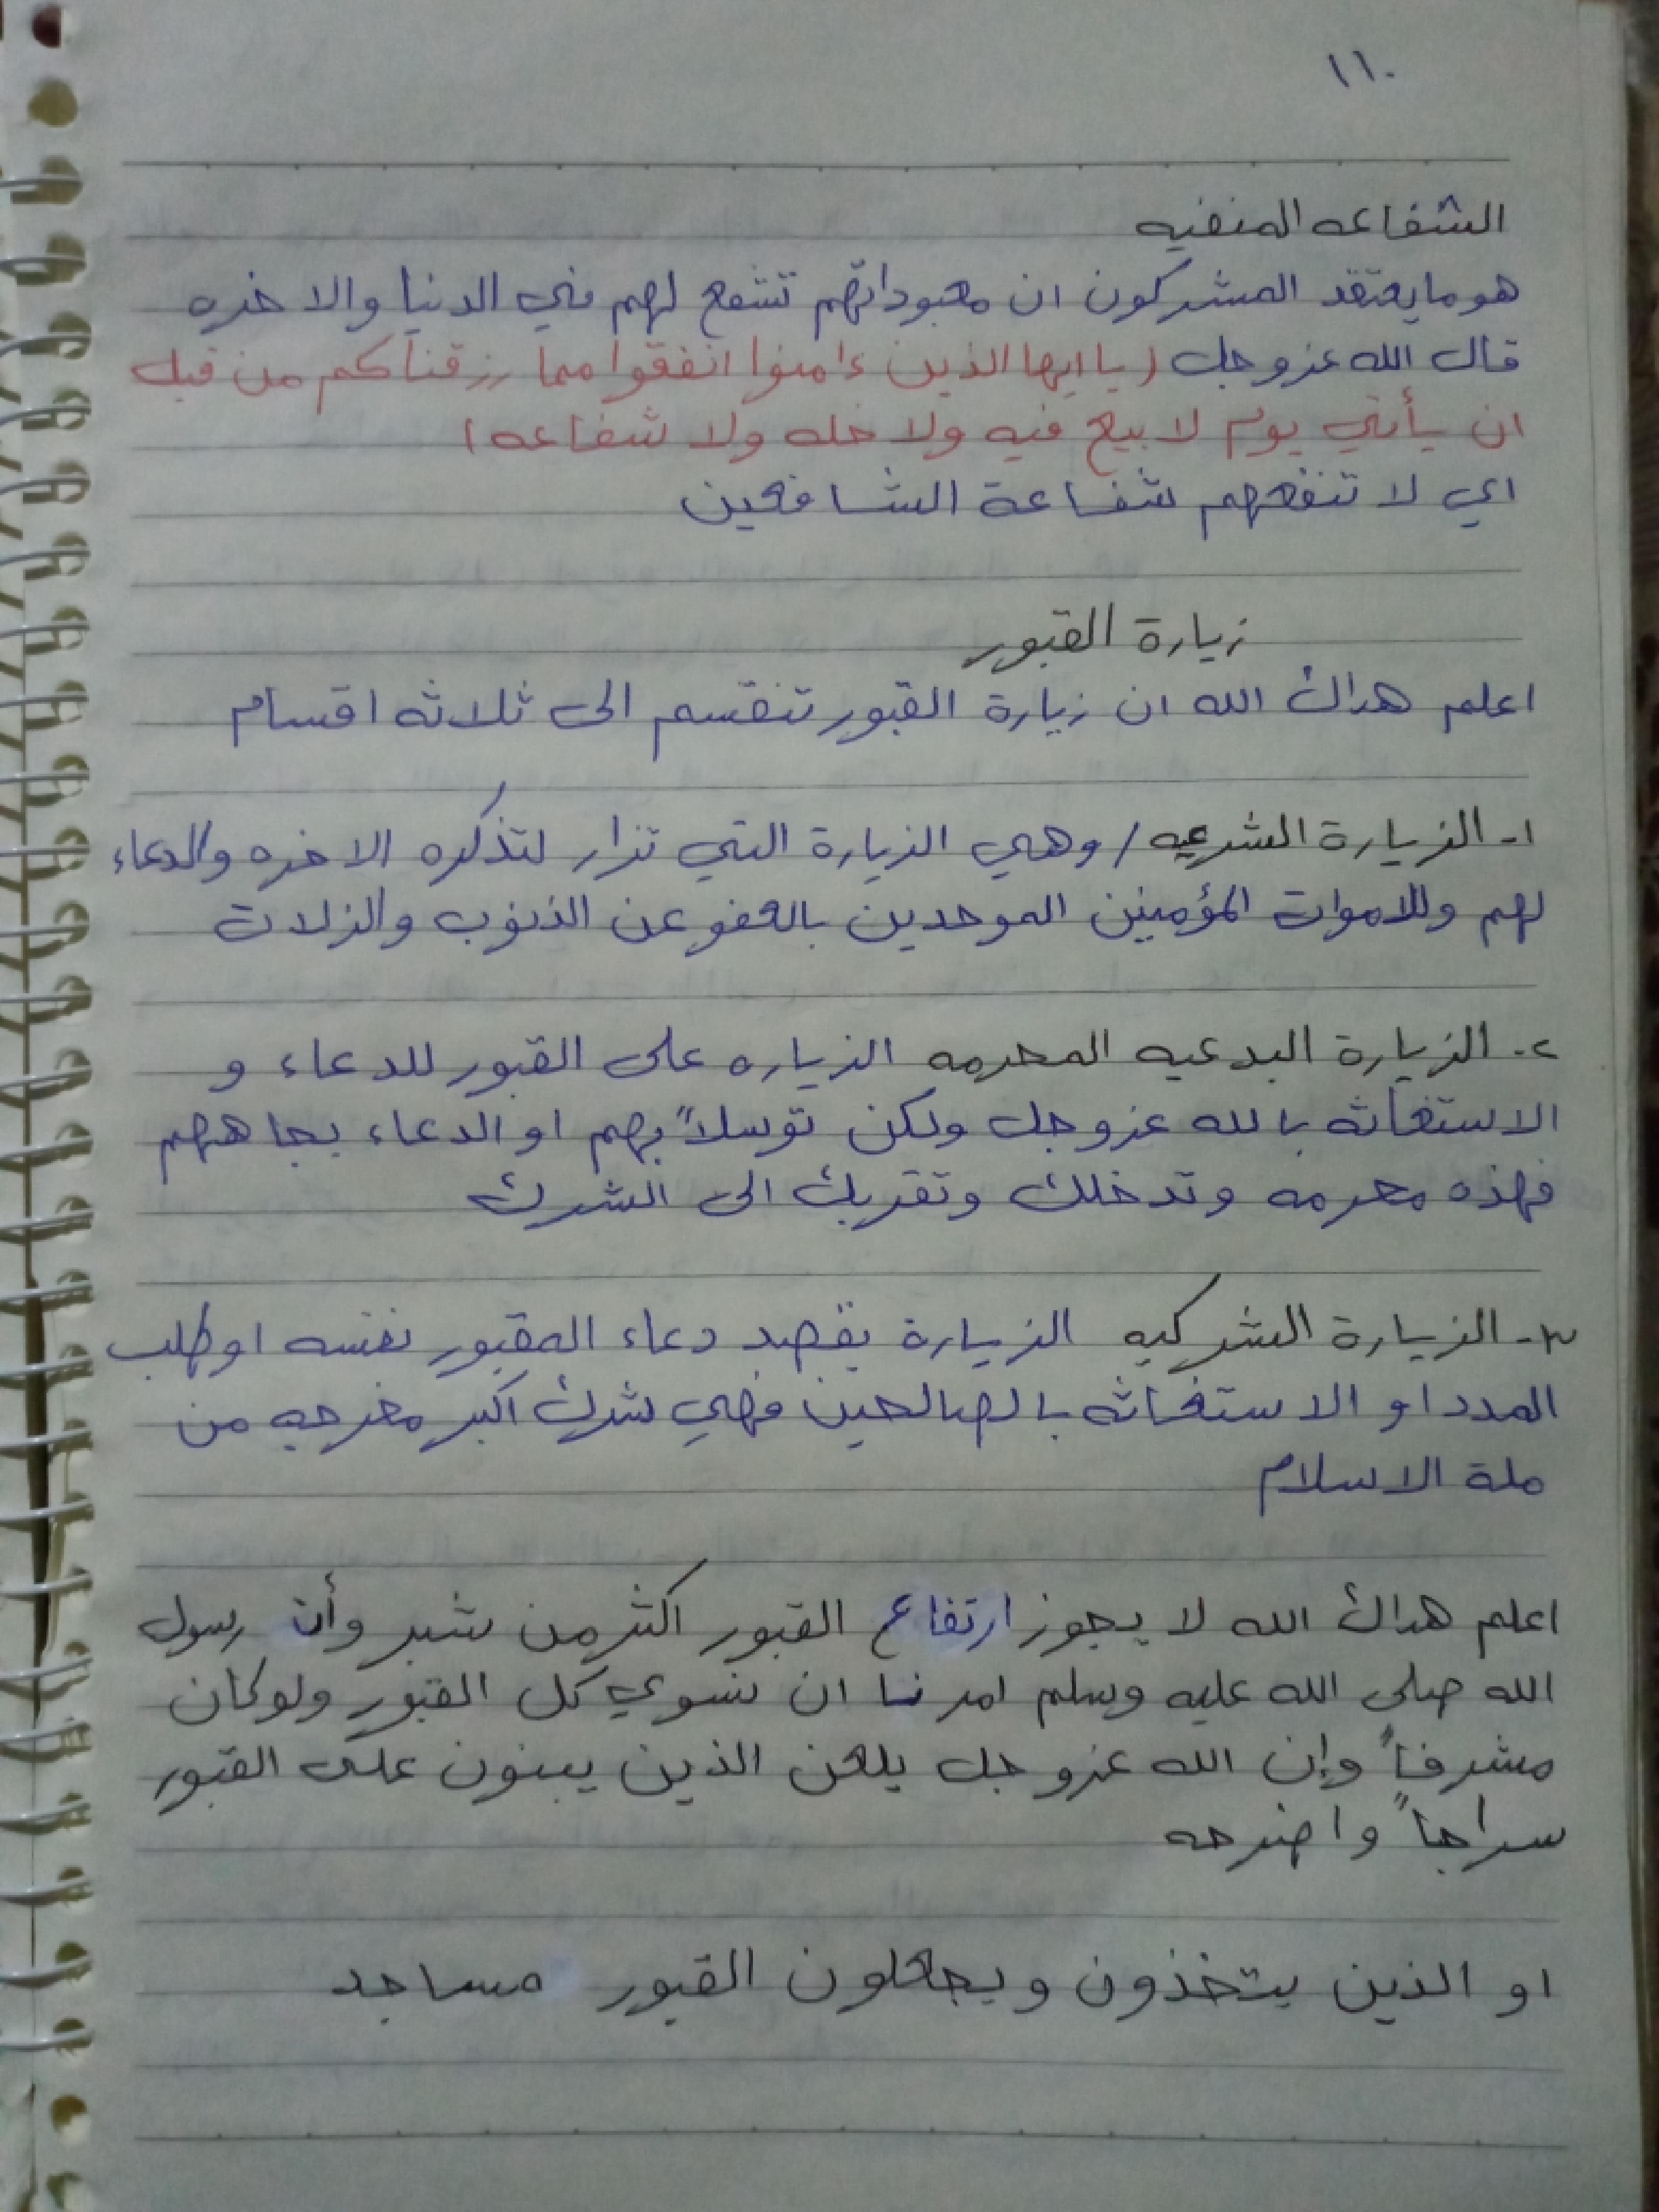 ١١٠
الشفاعه المنفيه
هو ما يعتقد المشركون ان معبوداتهم تشفع لهم في الدنيا والاخره
قال الله عزوجل (يا ايها الذين ءامنوا انفقوا مما رزقناكم من قبل
ان يأتي يوم لا بيع فيه ولا خله ولا شفاعه)
اي لا تنفعهم شفاعة الشافعين
زيارة القبور
اعلم هداك الله ان زيارة القبور تنقسم الى ثلاثه اقسام
١- الزيارة الشرعيه / وهي الزيارة التي تزار لتذكره الاخره والدعاء
لهم وللاموات المؤمنين الموحدين بالعفو عن الذنوب والزلات
٢- الزيارة البدعيه المحرمه الزياره على القبور للدعاء و
الاستغاثه بالله عزوجل ولكن توسلاً بهم او الدعاء بجاههم
فهذه محرمه وتدخلك وتقربك الى الشرك
٣- الزيارة الشركيه الزيارة بقصد دعاء المقبور نفسه او طلب
المدد او الاستغاثه بالصالحين فهي شرك اكبر مخرجه من
ملة الاسلام
اعلم هداك الله لا يجوز ارتفاع القبور اكثر من شبر وأن رسول
الله صلى الله عليه وسلم امرنا ان نسوي كل القبور ولو كان
مشرفاً وإن الله عزوجل يلعن الذين يبنون على القبور
سراجاً واضرحه
او الذين يتخذون ويجعلون القبور مساجد